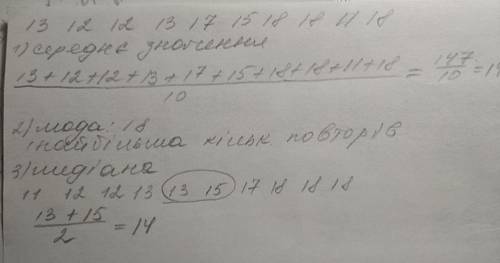 13 12 12 13 17 15 18 18 11 18
1) середнє значення
13+12+12+13+17+15+18+18+11+18
10
= 147/10 = 14
2) мода: 18
найбільша кільк. повторів
3) медіана
11 12 12 13 13 15 17 18 18 18
13+15
2
= 14